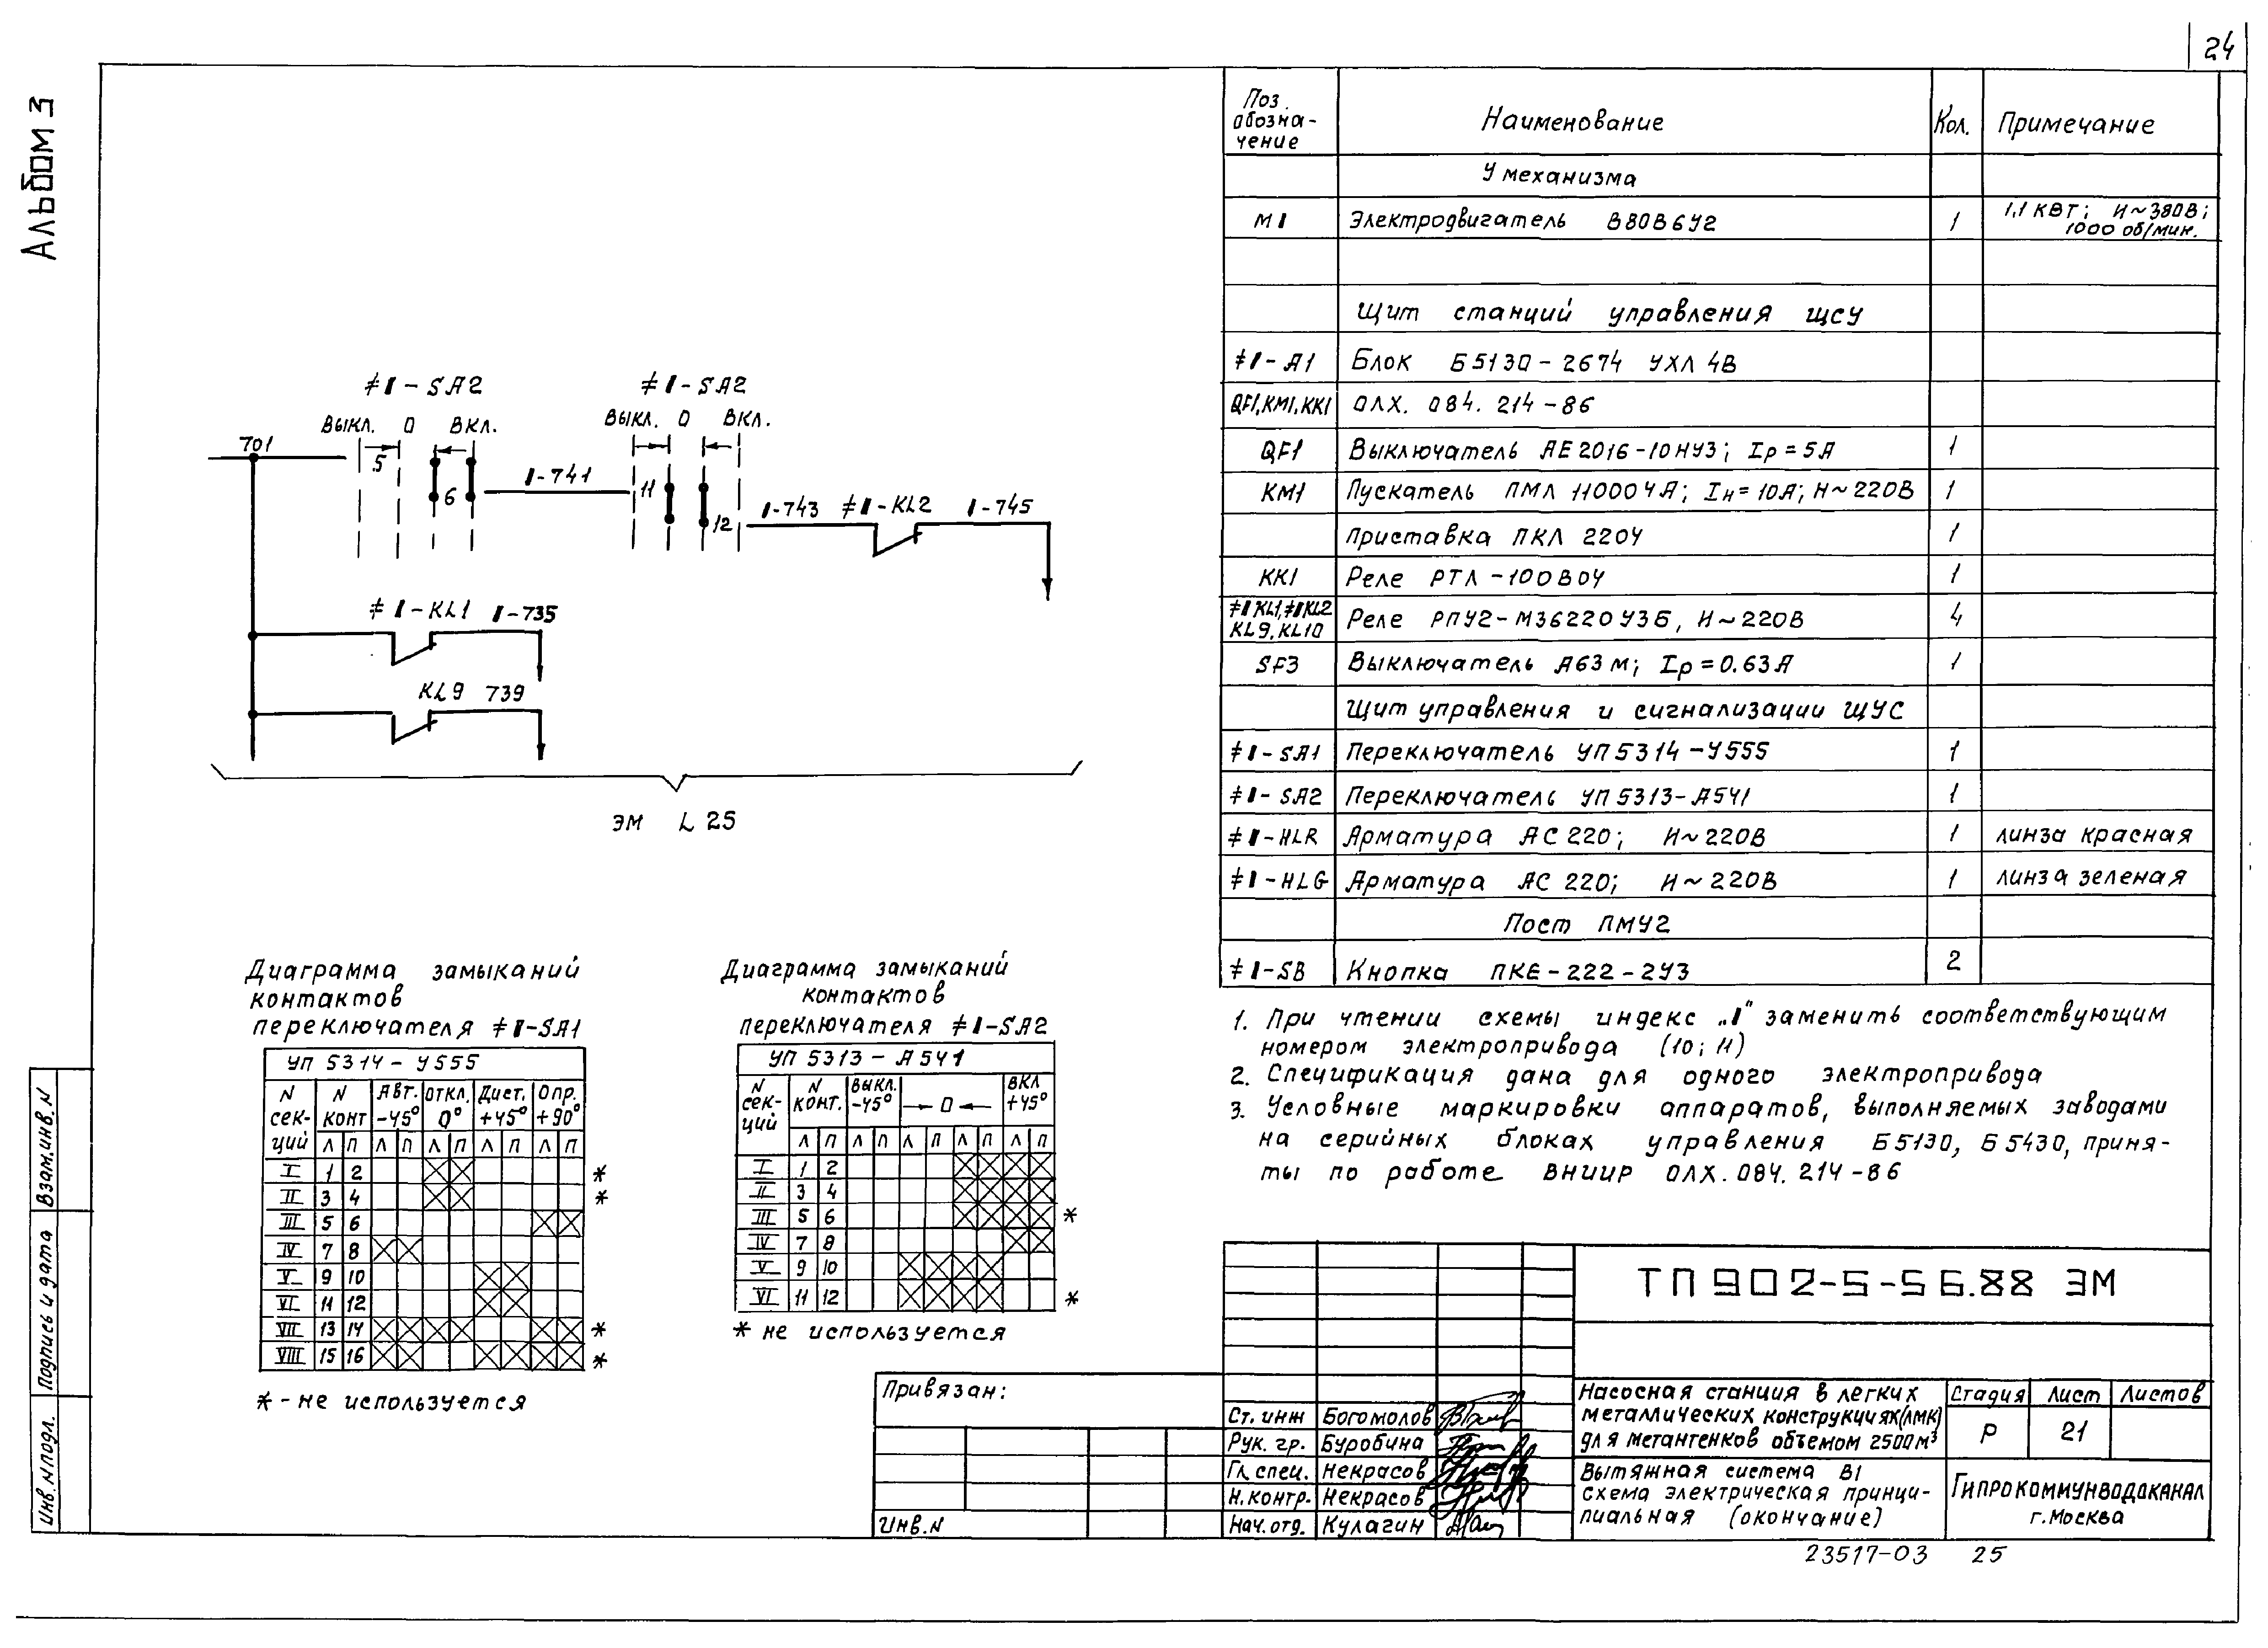 24
Альбом 3
Поз. обозна- чение | Наименование | Кол. | Примечание
У механизма
М1 | Электродвигатель В80В6У2 | 1 | 1,1 кВт; И~380В; 1000 об/мин.
Щит станций управления ЩСУ
≠1-А1 | Блок Б5130-2674 УХЛ 4В
QF1, КМ1, КК1 | ОЛХ. 084. 214-86
QF1 | Выключатель АЕ2016-10НУ3; Iр=5А | 1
КМ1 | Пускатель ПМЛ 110004А; Iн=10А; И~220В | 1
Приставка ПКЛ 2204 | 1
КК1 | Реле РТЛ-100В04 | 1
≠1KL1, ≠1KL2 KL9, KL10 | Реле РПУ2-М36220У3Б, И~220В | 4
SF3 | Выключатель А63 м; Iр=0.63А | 1
Щит управления и сигнализации ЩУС
≠1-SA1 | Переключатель УП5314-У555 | 1
≠1-SA2 | Переключатель УП5313-А541 | 1
≠1-HLR | Арматура АС220; И~220В | 1 | линза красная
≠1-HLG | Арматура АС 220; И~220В | 1 | линза зеленая
Пост ПМУ2
≠1-SB | Кнопка ПКЕ-222-2У3 | 2
≠1-SA2 ≠1-SA2
Выкл. 0 Вкл. Выкл. 0 Вкл.
701 5 6 1-741 11 12 1-743 ≠1-KL2 1-745
≠1-KL1 1-735
KL9 739
ЭМ L 25
Диаграмма замыканий
контактов
переключателя ≠1-SA1
УП 5314-У555
N сек- ций | N конт | Авт. -45° | Откл. 0° | Дист. +45° | Опр. +90°
Л П Л П Л П Л П Л П
I 1 2 *
II 3 4 *
III 5 6
IV 7 8
V 9 10
VI 11 12
VII 13 14 *
VIII 15 16 *
* - не используется
Диаграмма замыканий
контактов
переключателя ≠1-SA2
УП 5313-А541
N сек- ций | N конт. | Выкл. -45° | → 0 ← | Вкл +45°
Л П Л П Л П Л П Л П
I 1 2
II 3 4
III 5 6 *
IV 7 8
V 9 10
VI 11 12 *
* не используется
1. При чтении схемы индекс „1" заменить соответствующим
номером электропривода (10; 11)
2. Спецификация дана для одного электропривода
3. Условные маркировки аппаратов, выполняемых заводами
на серийных блоках управления Б5130, Б5430, приня-
ты по работе ВНИИР ОЛХ. 084. 214-86
Взам.инв.N
Подпись и дата
Инв.N подл.
Привязан:
Инв.N
Ст. инж Богомолов
Рук. гр. Буробина
Гл. спец. Некрасов
Н.контр. Некрасов
Нач. отд. Кулагин
ТП 902-5-56.88 ЭМ
Насосная станция в легких
металлических конструкциях(ЛМК)
для метантенков объемом 2500м³
Стадия Лист Листов
Р 21
Вытяжная система В1
схема электрическая принци-
пиальная (окончание)
Гипрокоммунводоканал
г. Москва
23517-03 25